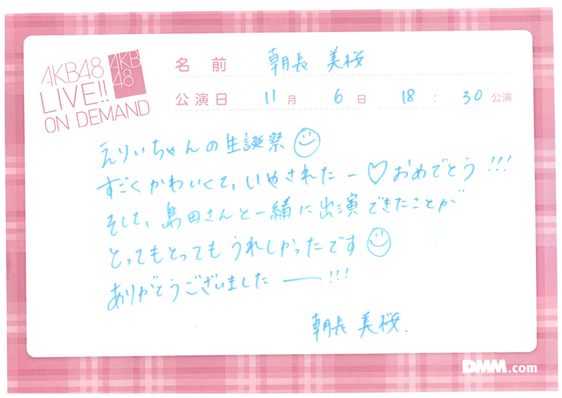 AKB48
LIVE!!
ON DEMAND
AKB
48
名前 朝長 美桜
公演日 11月 6日 18:30公演
えりいちゃんの生誕祭
すごくかわいくて、いやされたー♡おめでとう!!!
そして、島田さんと一緒に出演できたことが
とってもとってもうれしかったです
ありがとうございました――!!!
朝長 美桜.
DMM.com